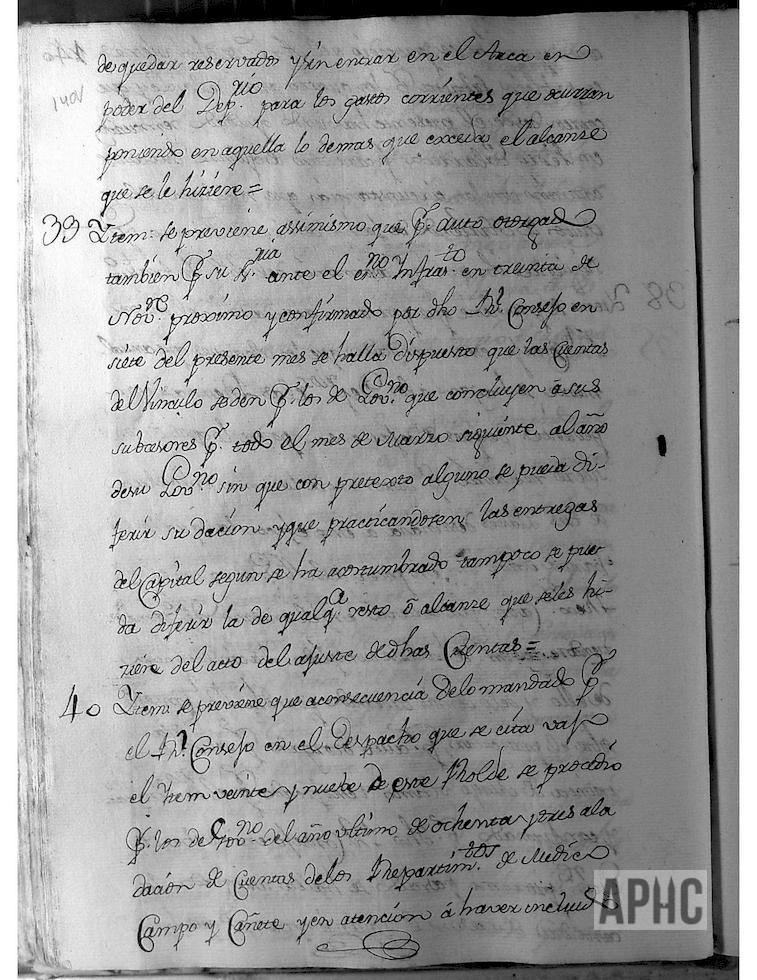 140v
de quedar reservados y sin entrar en el Arca en
poder del Dep.rio para los gastos corrientes que ocurran
poniendo en aquella lo demas que exceda el alcanze
que se le hiziere =
39 Ytem: se previene assimismo que p.r auto otorgado
tambien p.r su S.ria ante el es.no Infras.to en treinta de
Nov.re proximo y confirmado por dho R.l Consejo en
siete del presente mes se halla dispuesto que las Cuentas
de Vinculo se den p.r los de Gov.no que concluyen á sus
subcesores p.r todo el mes de Marzo siguiente al año
de su Gov.no sin que con pretexto alguno se pueda di-
ferir su dacion y que practicandosen las entregas
del Capital segun se ha acostumbrado tampoco se pue-
da diferir la de qualq.a resto ó alcanze que seles hi-
ziere del acto del ajuste de dhas Cuentas =
40 Ytem: se previene que a consecuencia de lo mandado p.r
el R.l Consejo en el Despacho que se cita vajo
el Ytem veinte y nuebe de este Rolde se procedió
p.r los de Gov.no del año ultimo de ochenta y tres a la
dacion de Cuentas de los Repartim.tos de Medico
Campo y Cañete y en atencion á haver incluido
APHC